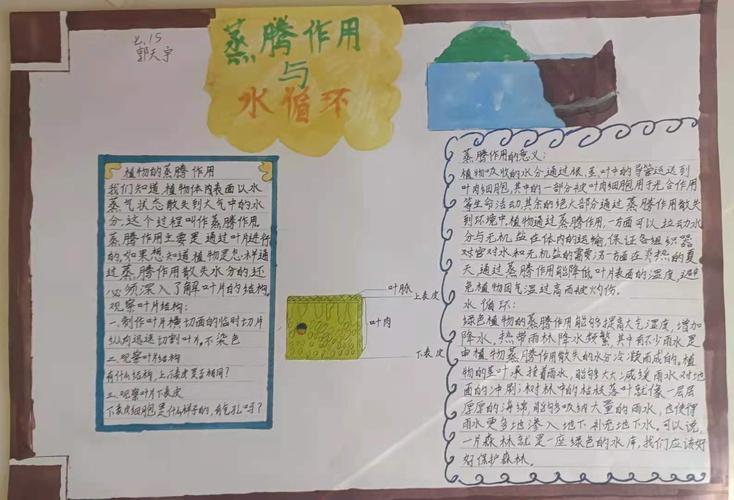 七.15
郭天宇
蒸腾作用
与
水循环
植物的蒸腾作用
我们知道植物体内表面以水
蒸气状态散失到大气中的水
分,这个过程叫作蒸腾作用.
蒸腾作用主要是通过叶片进行
的,如果想知道植物是怎样通
过蒸腾作用散失水分的,还
必须深入了解叶片的结构.
观察叶片结构:
一.制作叶片横切面的临时切片
纵向迅速切割叶片,不染色
二.观察叶片结构
有什么结构,上下表皮是否相同?
三.观察叶片下表皮
下表皮细胞是什么样子的,有气孔吗?
叶脉
上表皮
叶肉
下表皮
蒸腾作用的意义:
植物吸收的水分通过根、茎、叶中的导管运送到
叶肉细胞,其中的一部分被叶肉细胞用于光合作用
等生命活动,其余的绝大部分通过蒸腾作用散失
到环境中,植物通过蒸腾作用,一方面可以拉动水
分与无机盐在体内的运输,保证各组织器
对官对水和无机盐的需要;另一方面在炎热的夏
天通过蒸腾作用能降低叶片表面的温度,避
免植物因气温过高而被灼伤.
水循环:
绿色植物的蒸腾作用能够提高大气湿度,增加
降水,热带雨林降水频繁,其中有不少雨水是
由植物蒸腾作用散失的水分冷凝而成的,植
物的茎叶承接着雨水,能够大大减缓雨水对地
面的冲刷;树林中的枯枝落叶就像一层层
厚厚的海绵,能够吸纳大量的雨水,也使得
雨水更多地渗入地下,补充地下水,可以说,
一片森林就是一座绿色的水库,我们应该好
好保护森林.